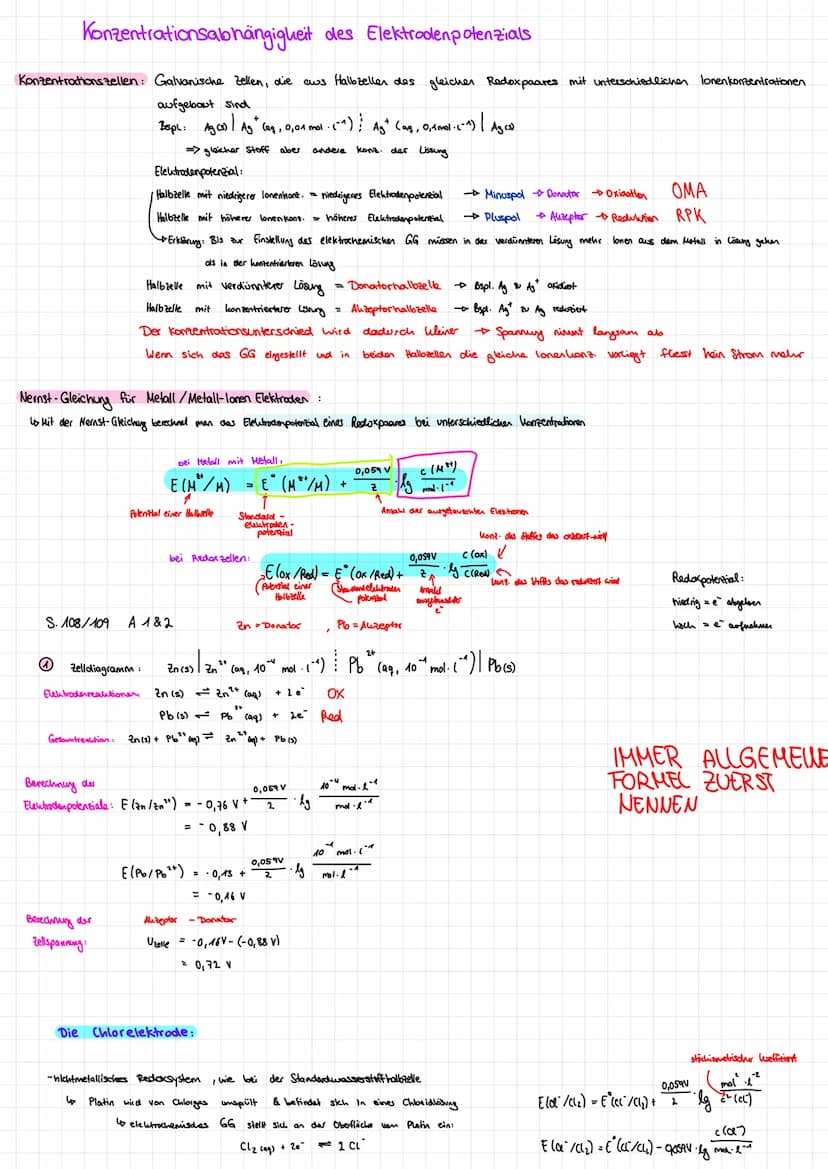 Konzentrationsabhängigkeit des Elektrodenpotenzials
Konzentrationszellen: Galvanische Zellen, die aus Halbzellen des gleichen Redoxpaares mit unterschiedlichen Ionenkonzentrationen
aufgebaut sind
Bspl.: Ag(s) | Ag⁺ (aq, 0,01 mol · l⁻¹) ⋮ Ag⁺ (aq, 0,1 mol · l⁻¹) | Ag(s)
=> gleicher Stoff aber andere Konz. der Lösung
Elektrodenpotenzial:
Halbzelle mit niedrigerer Ionenkonz. = niedrigeres Elektrodenpotential → Minuspol → Donator → Oxidation OMA
Halbzelle mit höherer Ionenkonz. = höheres Elektrodenpotential → Pluspol → Akzeptor → Reduktion RPK
↳ Erklärung: Bis zur Einstellung des elektrochemischen GG müssen in der verdünnteren Lösung mehr Ionen aus dem Metall in Lösung gehen
als in der konzentrierteren Lösung
Halbzelle mit verdünnterer Lösung = Donatorhalbzelle → Bspl. Ag zu Ag⁺ oxidiert
Halbzelle mit konzentrierterer Lösung = Akzeptorhalbzelle → Bspl. Ag⁺ zu Ag reduziert
Der Konzentrationsunterschied wird dadurch kleiner → Spannung nimmt langsam ab
Wenn sich das GG eingestellt und in beiden Halbzellen die gleiche Ionenkonz vorliegt fliesst kein Strom mehr
Nernst-Gleichung für Metall/Metall-Ionen Elektroden :
↳ Mit der Nernst-Gleichung berechnet man das Elektrodenpotential eines Redoxpaares bei unterschiedlichen Konzentrationen
bei Metall mit Metall:
E (Mᶻ⁺/M) = E° (Mᶻ⁺/M) + 0,059 V / z · lg c (Mᶻ⁺) / mol · l⁻¹
Potential einer Halbzelle
Standard-
elektroden-
potential
Anzahl der ausgetauschten Elektronen
Konz. des Stoffes das oxidiert wird
bei Redoxzellen:
E(ox/Red) = E° (ox/Red) + 0,059V / z · lg c(ox) / c(Red)
Potential einer
Halbzelle
Standardelektroden
potential
Anzahl
ausgetauschter
e⁻
Konz. des Stoffes das reduziert wird
Redoxpotential:
niedrig = e⁻ abgeben
hoch = e⁻ aufnehmen
S. 108/109 A 1&2
Zn = Donator , Pb = Akzeptor
① Zelldiagramm: Zn(s) | Zn²⁺ (aq, 10⁻⁴ mol · l⁻¹) ⋮ Pb²⁺ (aq, 10⁻¹ mol · l⁻¹) | Pb(s)
Elektrodenreaktionen Zn (s) ⇌ Zn²⁺ (aq) + 2e⁻ OX
Pb (s) ⇌ Pb²⁺ (aq) + 2e⁻ Red
Gesamtreaktion: Zn(s) + Pb²⁺(aq) ⇌ Zn²⁺(aq) + Pb (s)
IMMER ALLGEMEINE
FORMEL ZUERST
NENNEN
Berechnung der
Elektrodenpotenziale: E (Zn/Zn²⁺) = - 0,76 V + 0,059 V / 2 · lg 10⁻⁴ mol · l⁻¹ / mol · l⁻¹
= - 0,88 V
E (Pb/Pb²⁺) = - 0,13 + 0,059V / 2 · lg 10⁻¹ mol · l⁻¹ / mol · l⁻¹
= -0,16 V
Berechnung der
Zellspannung:
Akzeptor - Donator
U Zelle = -0,16V - (-0,88 V)
= 0,72 V
Die Chlorelektrode:
-nichtmetallisches Redoxsystem, wie bei der Standardwasserstoffhalbzelle
↳ Platin wird von Chlorgas umspült & befindet sich in einer Chloridlösung
↳ elektrochemisches GG stellt sich an der Oberfläche vom Platin ein:
Cl₂ (aq) + 2e⁻ ⇌ 2 Cl⁻
stöchiometrischer Koeffizient
E(Cl⁻/Cl₂) = E°(Cl⁻/Cl₂) + 0,059V / 2 · lg mol² · l⁻² / c² (Cl⁻)
E (Cl⁻/Cl₂) = E° (Cl⁻/Cl₂) - 0,059V · lg c(Cl⁻) / mol · l⁻¹